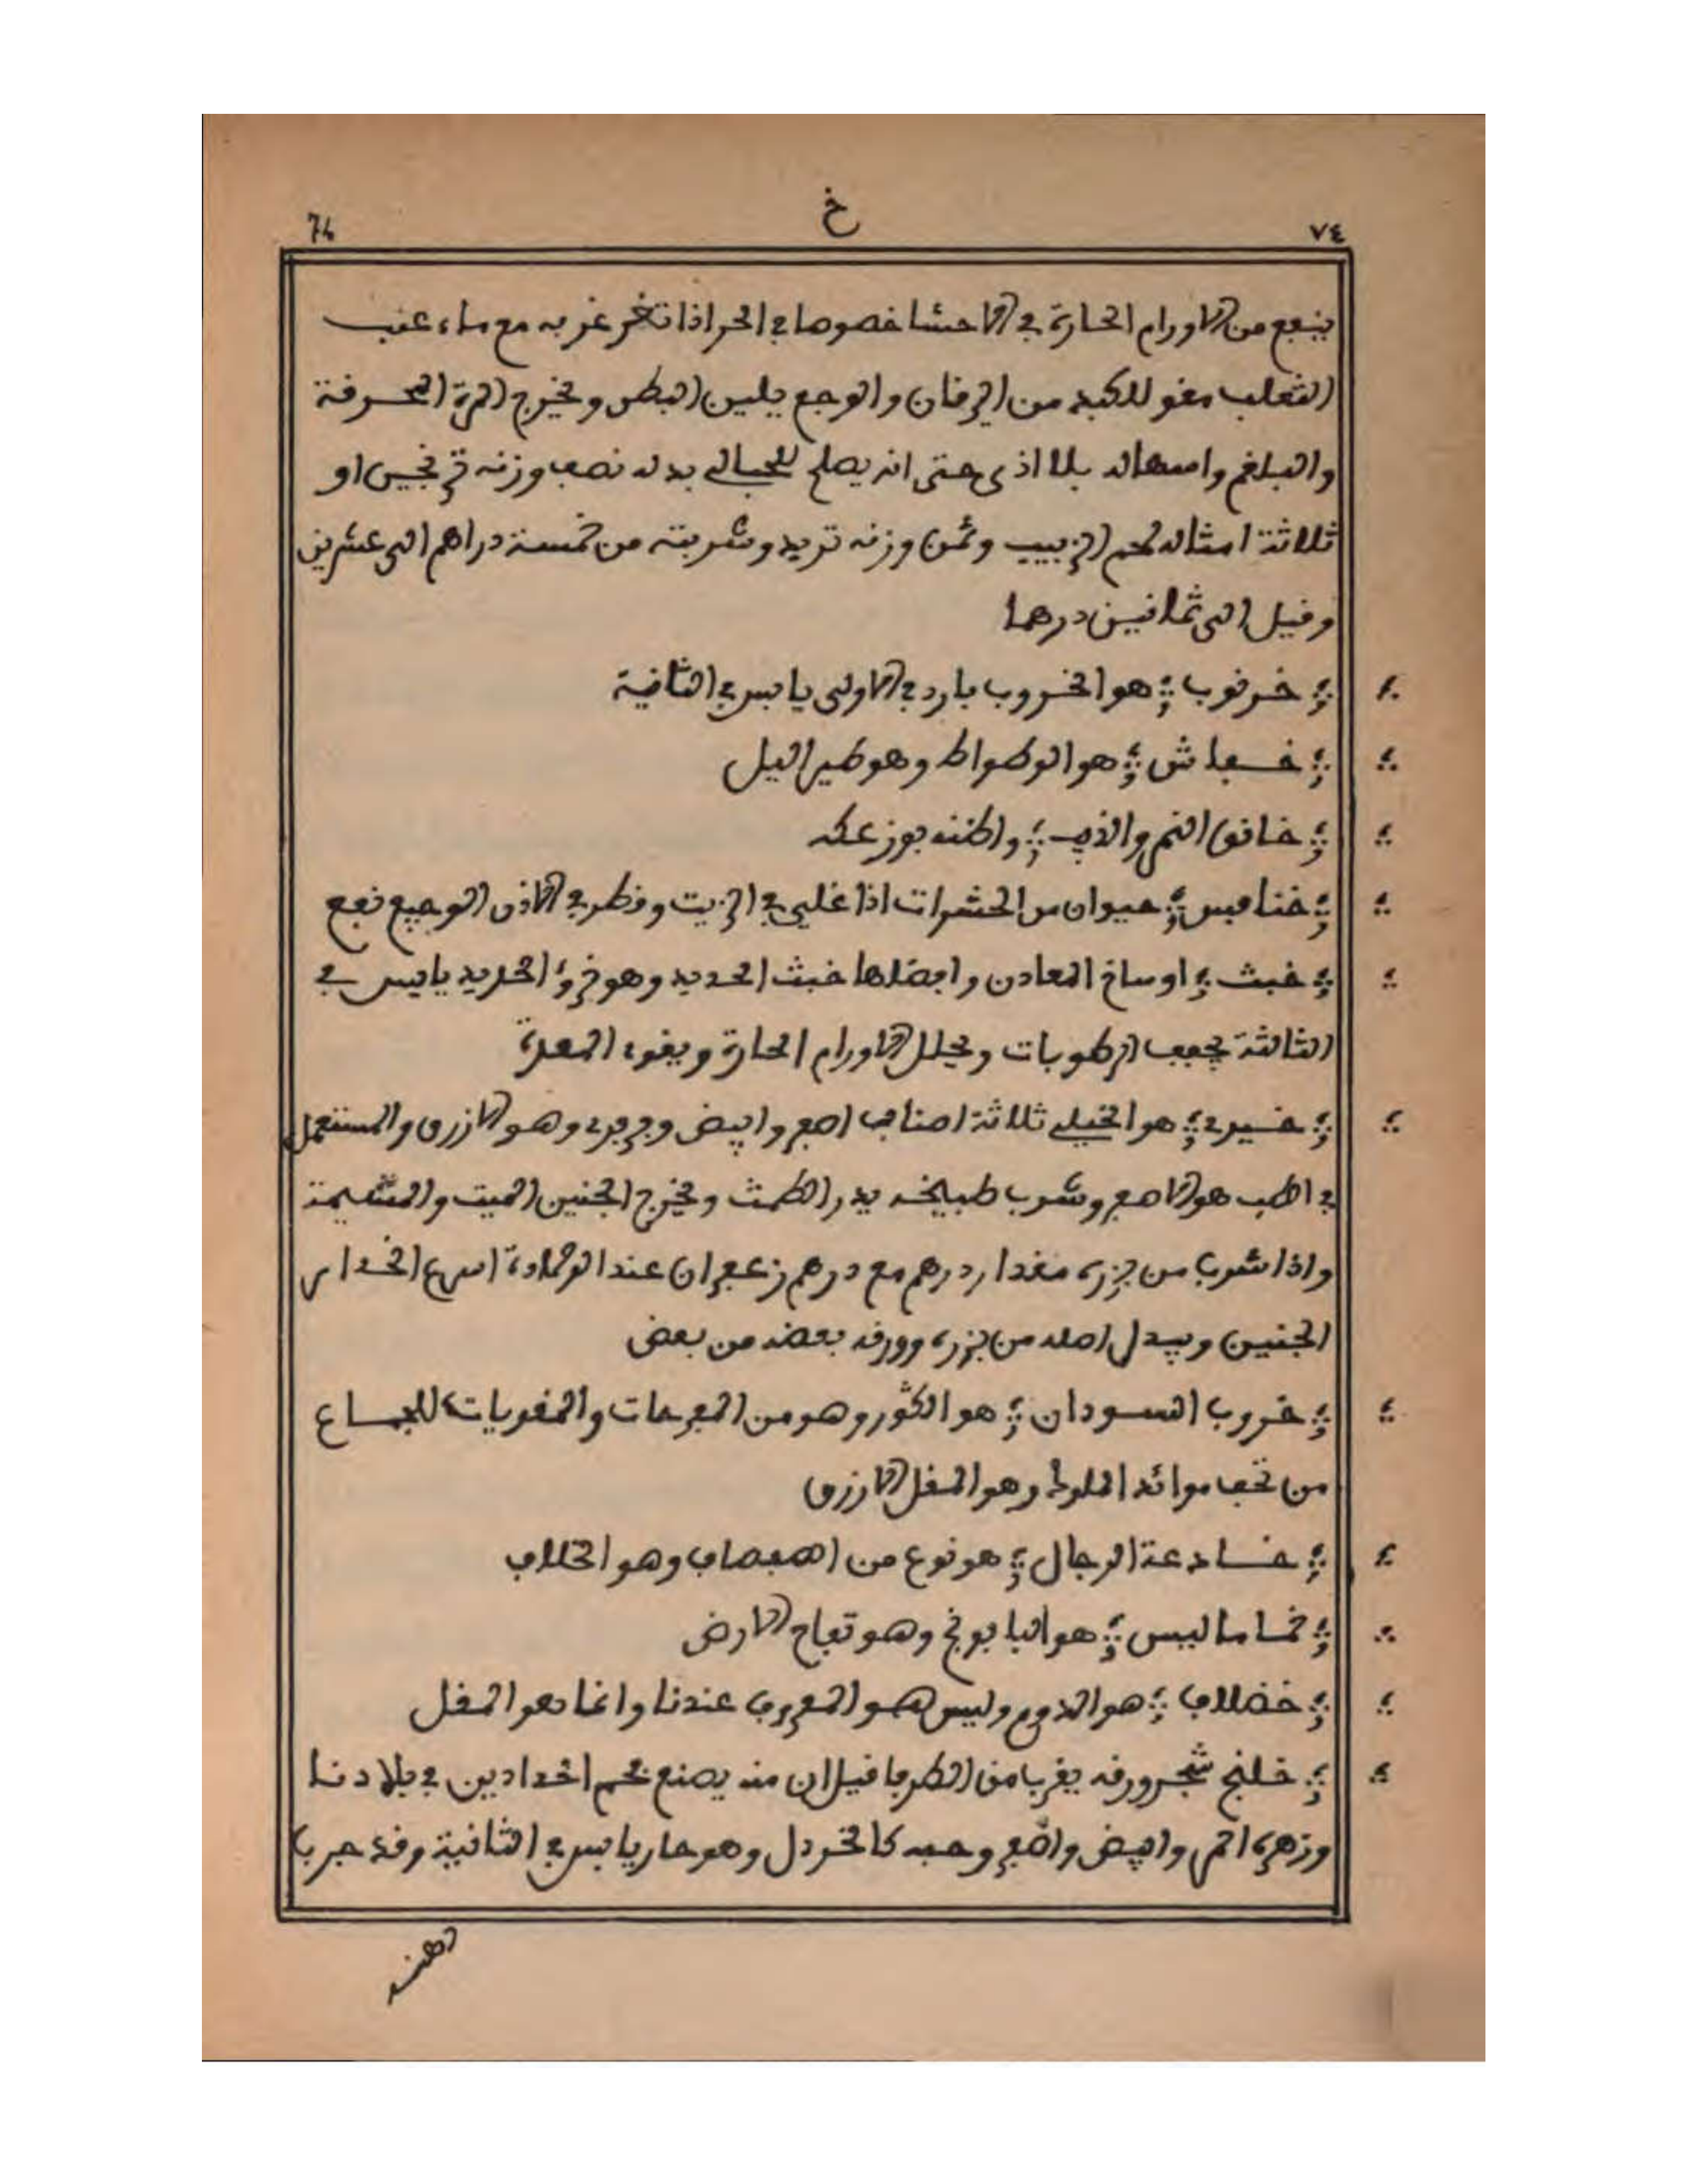 ٧٤ خ 74
ينفع من الاورام الحارة في الاحشا خصوصا في الحر اذا تغرغر به مع ماء عنب
الثعلب مقو للكبد من اليرقان والوجع يلين البطن ويخرج المرة المحرقة
والبلغم واسهاله بلا اذى حتى انه يصلح للحبالى بدله نصف وزنه ترنجبين او
ثلاثة امثاله لحم الزبيب وثمن وزنه تربد وشربته من خمسة دراهم الى عشرين
وقيل الى ثمانين درهما
خرنوب هو الخروب بارد في الاولى يابس في الثانية
خفاش هو الوطواط وهو طير اليل
خانق النمر والذيب واظنه بوزعكه
خنافس حيوان من الحشرات اذا غلي في الزيت وقطر في الاذن الوجيع نفع
خبث اوساخ المعادن وافضلها خبث الحديد وهو خرؤ الحديد يابس في
الثالثة يجفف الرطوبات ويحلل الاورام الحارة ويقوى المعدة
خيرى هو الخيلى ثلاثة اصناف اصفر وابيض وفرفرى وهو الازرق والمستعمل
في الطب هو الاصفر وشرب طبيخه يدر الطمث ويخرج الجنين الميت والمشيمة
واذا شرب من بزره مقدار درهم مع درهم زعفران عند الولادة اسرع انحدار
الجنين ويبدل اصله من بزره وورقه بعضه من بعض
خروب السودان هو الكور وهو من المفرحات والمقويات للجماع
من تحف موائد الملوك وهو المقل الازرق
خادعة الرجال هو نوع من الصفصاف وهو الخلاف
خاماليس هو البابونج وهو تفاح الارض
خضلاف هو الدوم وليس هو المعروف عندنا وانما هو المقل
خلنج شجر ورقه يقرب من الطرفا قيل ان منه يصنع فحم الحدادين في بلادنا
وزهره احمر وابيض واصفر وحبه كالخردل وهو حار يابس في الثانية وقد جرب
دهنه